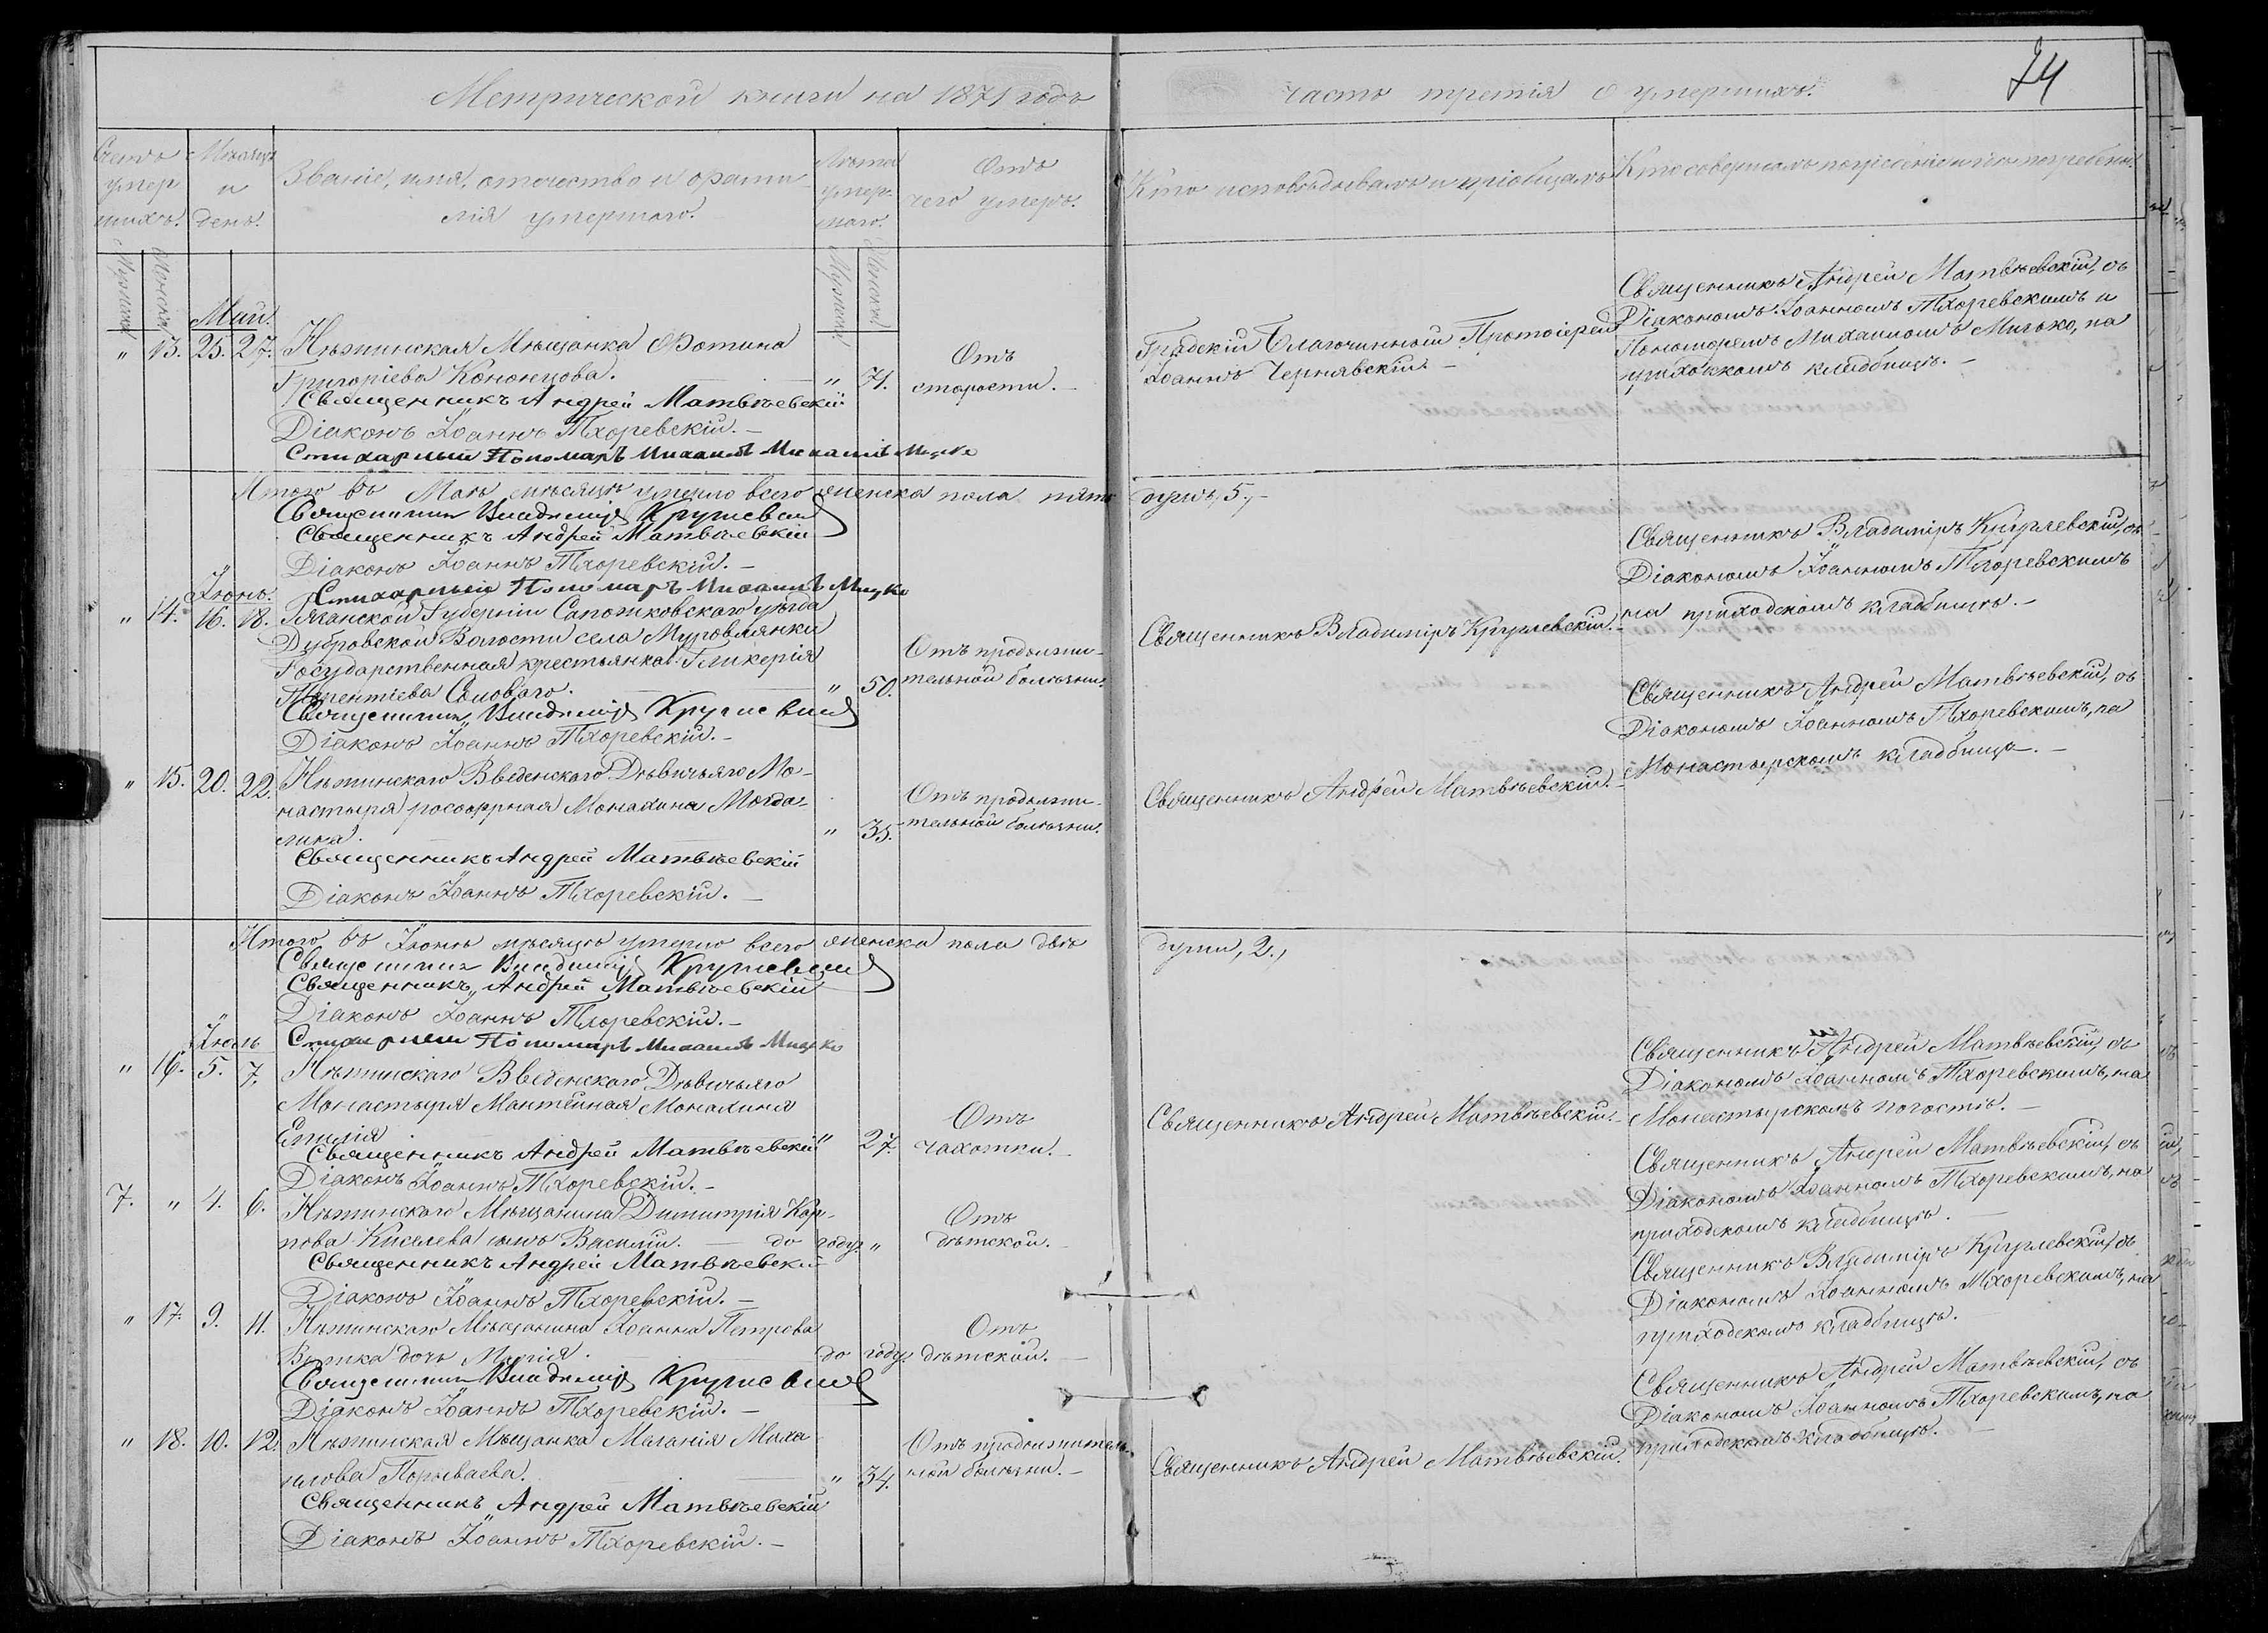 Метрической книги на 1871 годъ
часть третія о умершихъ.
74
Счетъ умер шихъ.
Мѣсяцъ и день.
Званіе, имя, отчество и фами-
лія умершаго.
Лѣта умер- шаго.
Отъ чего умеръ.
Кто исповѣдывалъ и пріобщалъ
Кто совершалъ погребеніе и гдѣ погребены.
Мужеска
Женска
Мужеска
Женска
Май.
" 13. 25. 27. Нѣжинская Мѣщанка Фотина
Григоріева Кононцова. " 71.
Отъ
старости.
Градскій Благочинный Протоіерей
Іоаннъ Чернявскій.
Священникъ Андрей Матвѣевскій, съ
Діакономъ Іоанномъ Тхоревскимъ и
Пономаремъ Михаиломъ Мицько, на
приходскомъ кладбищѣ.
Священникъ Андрей Матвѣевскій
Діаконъ Іоаннъ Тхоревскій.
Стихарный Пономарь Михаилъ Мицко
Итого въ Маѣ мѣсяцѣ умерло всего женска пола пять душъ, 5.
Священникъ Владиміръ
Священникъ Андрей Матвѣевскій
Діаконъ Іоаннъ Тхоревскій.
Стихарный Пономарь Михаилъ Мицко
Іюнь.
" 14. 16. 18. Рязанской Губерніи Сапожковскаго уѣзда
Дубровской Волости села Муровлянки
Государственная крестьянка Гликерія
" 50.
Отъ продолжи-
тельной болѣзни.
Священникъ Владиміръ
Священникъ Владиміръ съ
Діакономъ Іоанномъ Тхоревскимъ
на приходскомъ кладбищѣ.
Священникъ Владиміръ
Діаконъ Іоаннъ Тхоревскій.
" 15. 20. 22. Нѣжинскаго Введенскаго Дѣвичьяго Мо-
настыря рясофорная Монахиня Магда-
лина. " 35.
Отъ продолжи-
тельной болѣзни.
Священникъ Андрей Матвѣевскій.
Священникъ Андрей Матвѣевскій, съ
Діакономъ Іоанномъ Тхоревскимъ, на
Монастырскомъ кладбищѣ.
Священникъ Андрей Матвѣевскій
Діаконъ Іоаннъ Тхоревскій.
Итого въ Іюнѣ мѣсяцѣ умерло всего женска пола двѣ души, 2.
Священникъ Владиміръ
Священникъ Андрей Матвѣевскій
Діаконъ Іоаннъ Тхоревскій.
Стихарный Пономарь Михаилъ Мицко
Іюль
" 16. 5. 7. Нѣжинскаго Введенскаго Дѣвичьяго
Монастыря Мантейная Монахиня
" 27.
Отъ
чахотки.
Священникъ Андрей Матвѣевскій.
Священникъ Андрей Матвѣевскій, съ
Діакономъ Іоанномъ Тхоревскимъ, на
Монастырскомъ погостѣ.
Священникъ Андрей Матвѣевскій
Діаконъ Іоаннъ Тхоревскій.
7. " 4. 6. Нѣжинскаго Мѣщанина Димитрія Кар-
пова Киселева сынъ Василій. до году. "
Отъ
дѣтской.
Священникъ Андрей Матвѣевскій, съ
Діакономъ Іоанномъ Тхоревскимъ, на
приходскомъ кладбищѣ.
Священникъ Андрей Матвѣевскій
Діаконъ Іоаннъ Тхоревскій.
" 17. 9. 11. Нѣжинскаго Мѣщанина Іоанна Петрова
дочь Марія. до году.
Отъ
дѣтской.
Священникъ Владиміръ съ
Діакономъ Іоанномъ Тхоревскимъ, на
приходскомъ кладбищѣ.
Священникъ Владиміръ
Діаконъ Іоаннъ Тхоревскій.
" 18. 10. 12. Нѣжинская Мѣщанка Меланія Миха
илова Порываева. " 34.
Отъ продолжитель-
ной болѣзни.
Священникъ Андрей Матвѣевскій.
Священникъ Андрей Матвѣевскій, съ
Діакономъ Іоанномъ Тхоревскимъ, на
приходскомъ кладбищѣ.
Священникъ Андрей Матвѣевскій
Діаконъ Іоаннъ Тхоревскій.